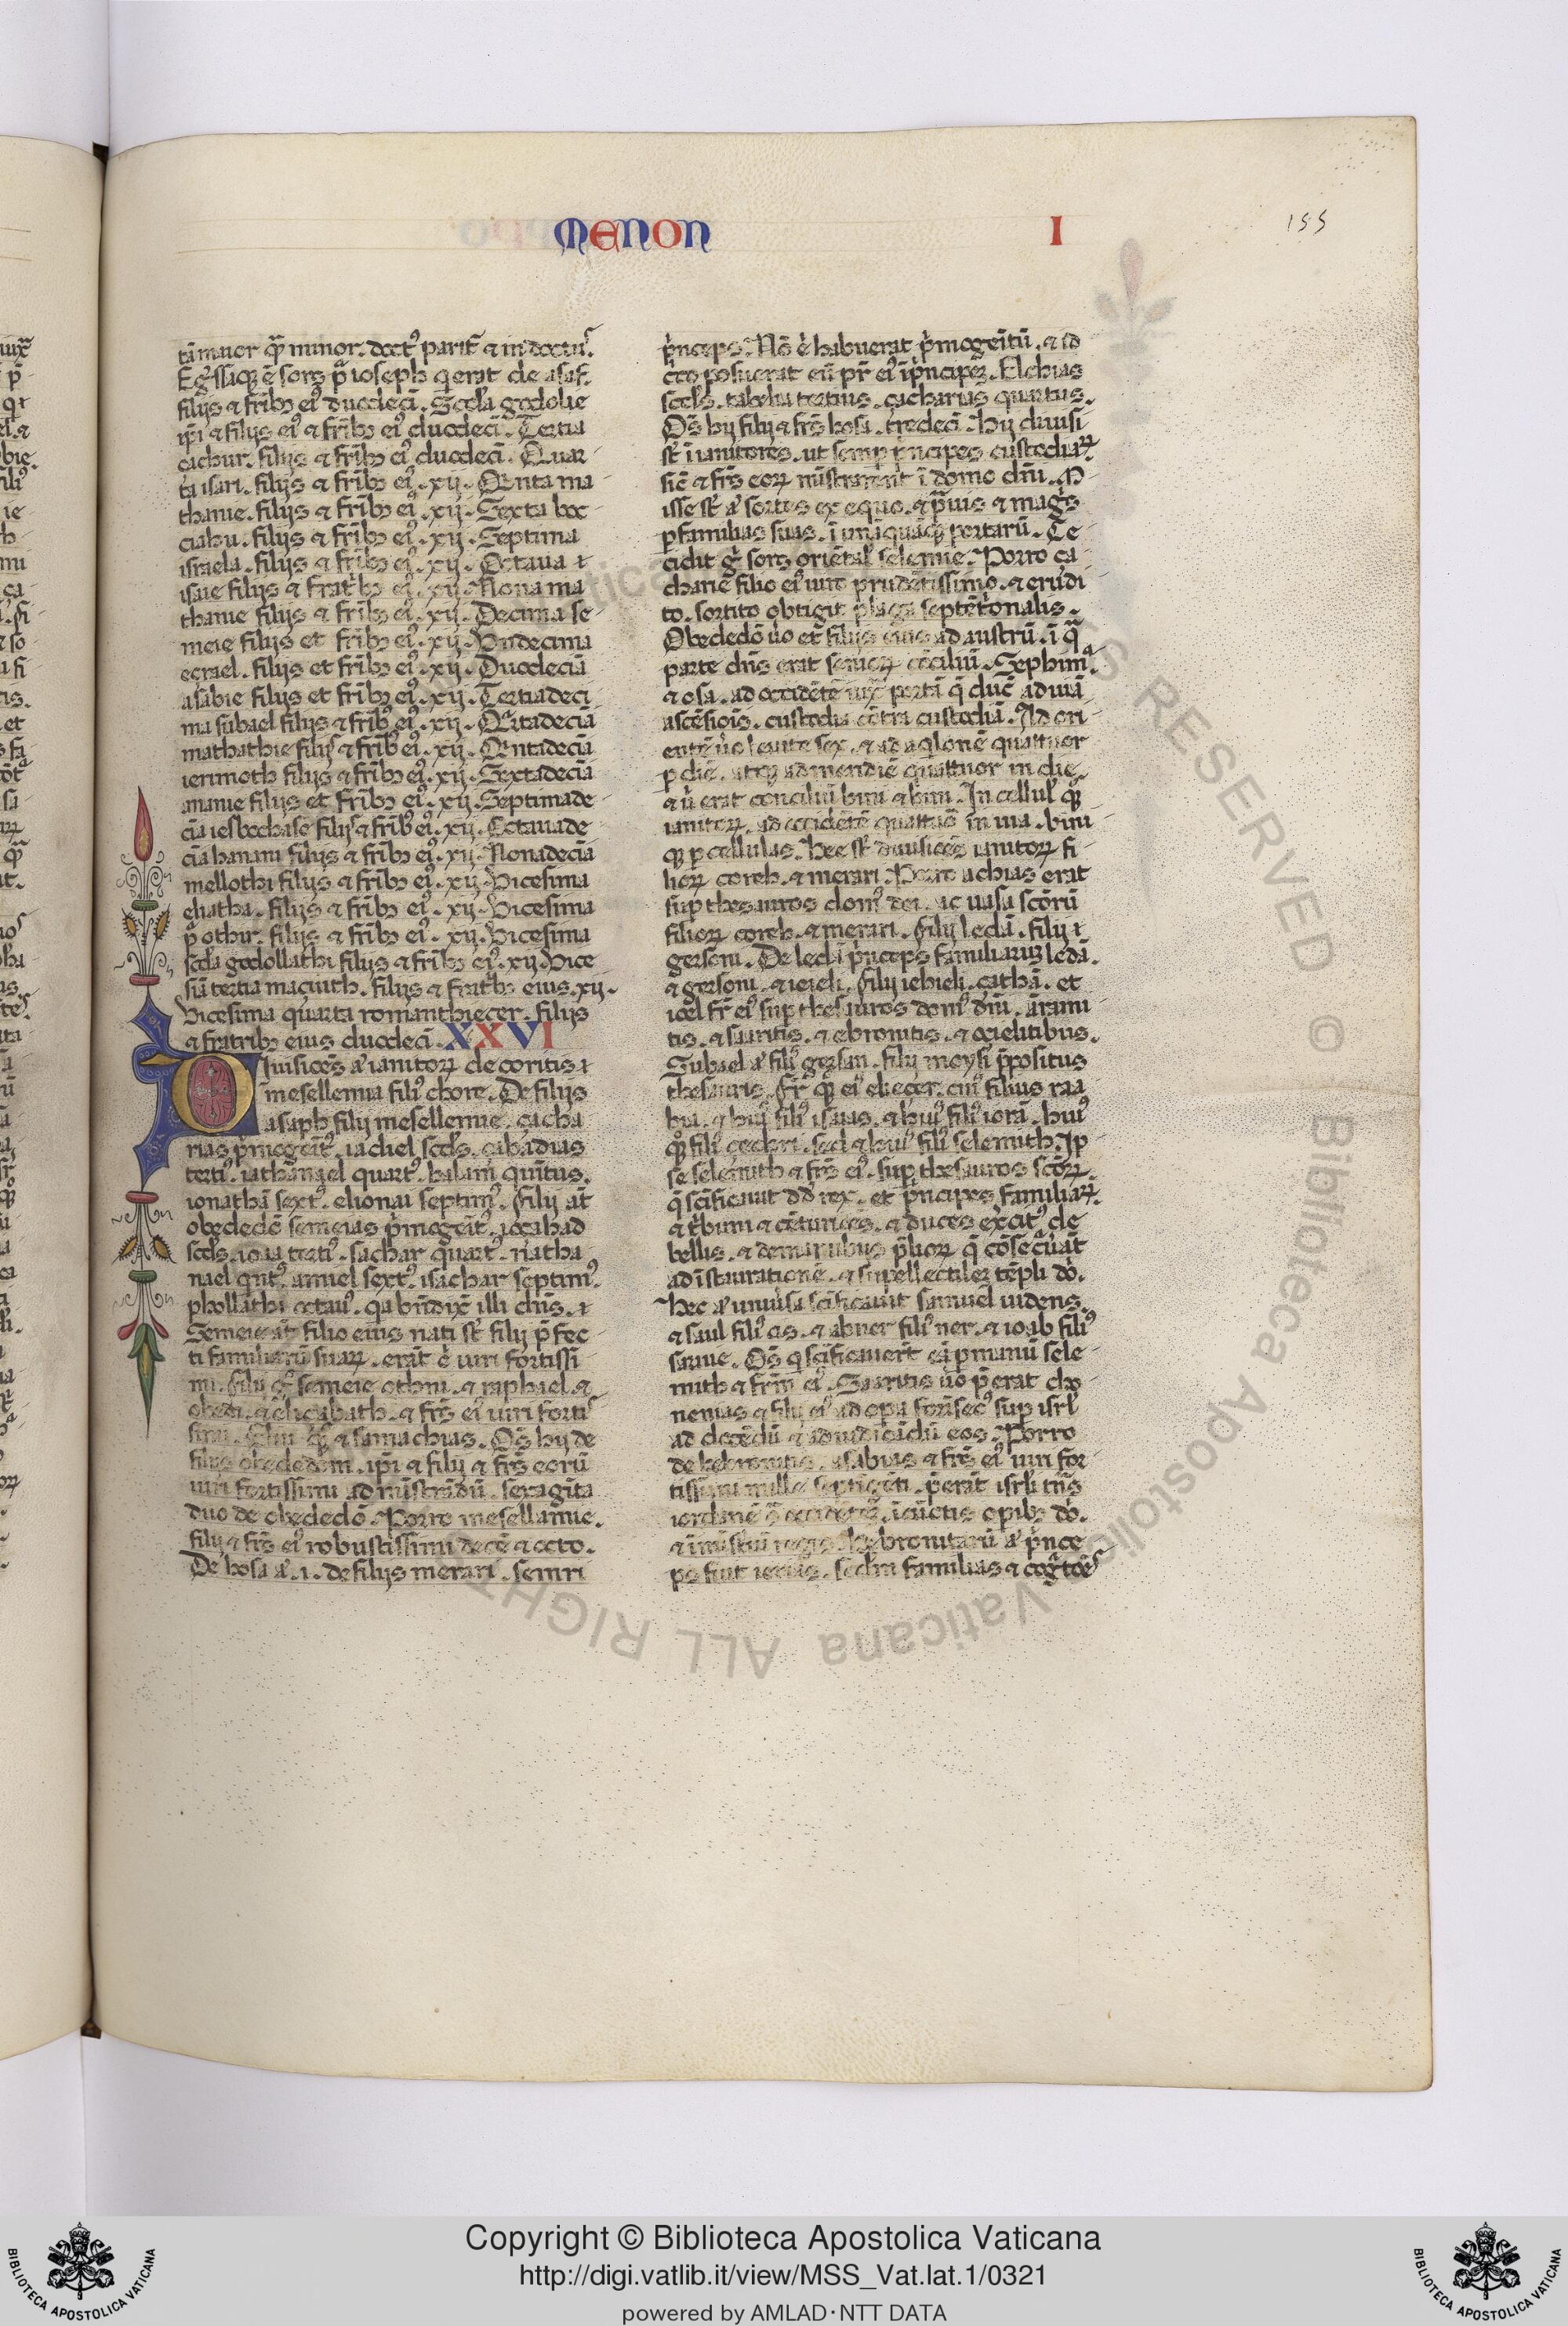 MENON
I
155
tā maior q̄ꝫ minor. doct9 parit̄ ⁊ indoctus.
Egr̄ssaqꝫ ē sors p̄a ioseph q̄ erat de asaf.
filijs ⁊ fr̄ibꝫ ei9 duodeci. Scd̄a godolie
ip̄i ⁊ filijs ei9 ⁊ fr̄ibꝫ ei9 duodeci. Tertia
çachur. filijs ⁊ fr̄ibꝫ ei9 duodeci. Quar
ta isari. filijs ⁊ fr̄ibꝫ ei9. xij. Qinta ma
thanie. filijs ⁊ fr̄ibꝫ ei9. xij. Sexta boc
ciahu. filijs ⁊ fr̄ibꝫ ei9. xij. Septima
israela. filijs ⁊ fr̄ibꝫ ei9. xij. Octaua
isaie filijs ⁊ frat̄bꝫ ei9. xij. Nona ma
thanie filijs ⁊ fr̄ibꝫ ei9. xij. Decima se
meie filijs et fr̄ibꝫ ei9. xij. Vndecima
eçrael. filijs et fr̄ibꝫ ei9. xij. Duodeciā
asabie filijs et fr̄ibꝫ ei9. xij. Tertiadeci
ma subael filijs ⁊ fr̄ibꝫ ei9. xij. Qrtadeciā
mathathie filijs ⁊ fr̄ibꝫ ei9. xij. Qntadeciā
ierimoth filijs ⁊ fr̄ibꝫ ei9. xij. Sextadeciā
ananie filijs et fr̄ibꝫ ei9. xij. Septimade
ciā iesbochase filijs ⁊ fr̄ibꝫ ei9. xij. Octauade
ciā hanani filijs ⁊ fr̄ibꝫ ei9. xij. Nonadeciā
mellothi filijs ⁊ fr̄ibꝫ ei9. xij. Vicesima
eliatha. filijs ⁊ fr̄ibꝫ ei9. xij. Vicesima
p̄a othir. filijs ⁊ fr̄ibꝫ ei9. xij. Vicesima
scd̄a godollathi filijs ⁊ fr̄ibꝫ ei9. xij. Vice
siā tertia maçiuth. filijs ⁊ frat̄bꝫ eius. xij.
Vicesima quarta romanthieçer. filijs
⁊ fratribꝫ eius duodeci. XXVI
Diuisiōes aū ianitoꝝ de coritis
mesellemia fili9 chore. De filijs
asaph filij mesellemie. çacha
rias p̄mogeit9. iadiel scd̄s. çabadias
terti9. iathanael quart9. halam quintus.
ionathā sext9. elionai septim9. filij aūt
obededō semeias p̄mogeit9. ioçabad
scd̄s. ioaa terti9. sachar quart9. natha
nael qnt9. amiel sext9. isachar septim9.
phollathi octau9. qa bn̄dixit illi dn̄s.
Semeie aūt filio eius nati st̄ filij p̄fec
ti familiarū suaꝝ. erāt ē uiri fortissi
mi. filij g9 semeie othni. ⁊ raphael. ⁊
obedi. ⁊ eliçabath. ⁊ fr̄s ei9 uiri forti
simi. ⁊ samachias. Oēs hij de
filijs obededom. ip̄i ⁊ filij ⁊ fr̄s eorū
uiri fortissimi ad ministrādū. sexaginta
duo de obededō. Porro mesellamie.
filij ⁊ fr̄s ei9 robustissimi decē ⁊ octo.
De hosa aū. i. de filijs merari. semri
p̄nceps. Nō ē habuerat p̄mogenitū. ⁊ id
circo posuerat eū pr̄ ei9 ī p̄ncipem. Elchias
scd̄s. tabelia tertius. çacharias quartus.
Oēs hij filij ⁊ fr̄s hosa. tredeci. Hij diuisi
st̄ ī ianitores. ut semp p̄ncipes custodiaꝝ
sic ⁊ fr̄s eoꝝ ministrarent ī domo dn̄i. M
isse st̄ aū sortes ex equo. ⁊ p̄uis ⁊ magis
p familias suas. ī unāquāqꝫ portarū. Ce
cidit g̊ sors oriētal selemie. Porro ça
charie filio ei9 uiro prudētissimo. ⁊ erudi
to. sortito obtigit plaga septētrionalis.
Obededō uo et filijs eius ad austrū. ī q̄
parte dn̄s erat senioꝝ cōciliū. Sephima
⁊ osa. ad occidētē iux̄ portā q̄ duc̄ ad uiā
ascēsiois. custodia cōtra custodiā. Ad ori
entē uo leuite sex. ⁊ ad aqlonē quattuor
p diē. atqꝫ ad meridiē quattuor in die.
⁊ u erat conciliū bini ⁊ bini. In cellul qꝫ
ianitoꝝ. ad occidētē quattuor in uia. bini
qꝫ p cellulas. Hee st̄ diuisiōes ianitoꝝ fi
lioꝝ coreh. ⁊ merari. Porro achias erat
sup thesauros dom9 dei. ac uasa scōrū
filioꝝ coreh. ⁊ merari. filij ledā. filij
gersoni. De ledā p̄nceps familiarum ledā.
⁊ gersoni. ⁊ ieieli. filij iehieli. çathā. et
ioel fr̄ ei9 sup thesauros dom9 dn̄i. ārami
tis. ⁊ saaritis. ⁊ ebronitis. ⁊ oçielitibus.
Subael aū fili9 gersan. filij moysi p̄positus
thesauris. fr̄ qꝫ ei9 elieçer. cui9 filius raa
bia. ⁊ hui9 fili9 isaias. ⁊ hui9 fili9 iorā. hui9
qꝫ fili9 çechri. sed ⁊ hui9 fili9 selemith. Ip
se selemith ⁊ fr̄s ei9. sup thesauros scōꝝ.
q̄ scīficauit dd̄ rex. et p̄ncipes familiaꝝ.
⁊ t̄buni ⁊ cēturiōes. ⁊ duces exc̄it9 de
bellis. ⁊ de manubiis p̄lioꝝ q̄ cōsec̄uāt
ad īstaurationē. ⁊ supellectilem tēpli dn̄i.
Hec aū uniuersa scīficauit samuel uidens.
⁊ saul fili9 cis. ⁊ abner fili9 ner. ⁊ ioab fili9
saruie. Oēs q scīficauerūt ea p manū sele
mith ⁊ fr̄m ei9. Saaritis uo p̄erat cho
nenias ⁊ filij ei9 ad opa forīsec9 sup isrl
ad docēdū ⁊ ad iudicādū eos. Porro
de hebronitis. asabias ⁊ fr̄s ei9 uiri for
tissimi mille septigēti. p̄erāt isrl̄i trās
iordanē ī cūctis opibꝫ dn̄i.
⁊ ī mīsteriū regis. Hebronitarū aū p̄nce
ps fuit ierias. scd̄m familias ⁊ cogtōes
Copyright © Biblioteca Apostolica Vaticana
http://digi.vatlib.it/view/MSS_Vat.lat.1/0321
powered by AMLAD·NTT DATA